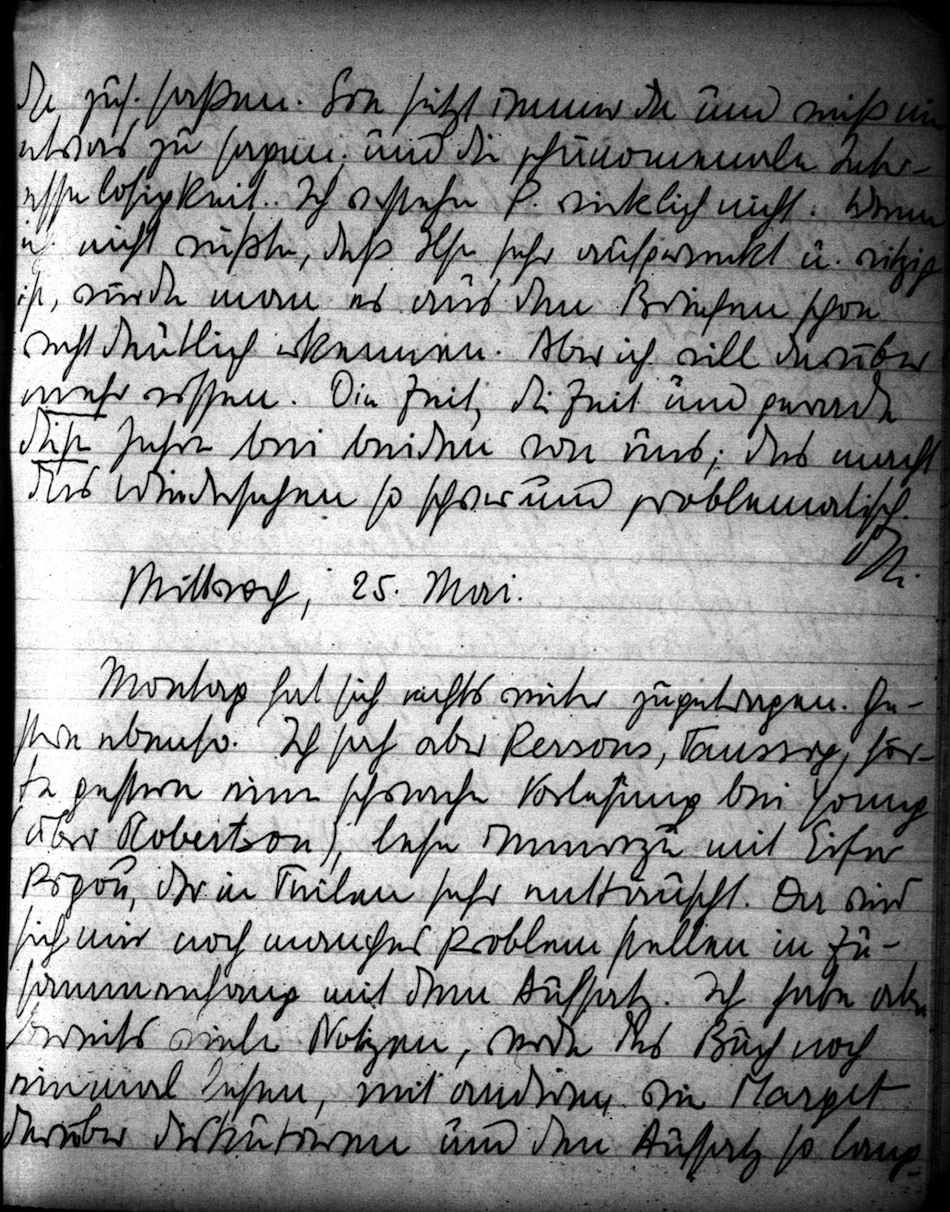 da zus. saßen. Sie sitzt immer da und weiß nie
etwas zu sagen und die phänomenale Inter-
esselosigkeit. Ich verstehe P. wirklich nicht. Wenn
ich nicht wüßte, daß Ilse sehr aufgeweckt u. witzig
ist, würde man es aus den Briefen schon
recht deutlich erkennen. Aber ich will darüber
mehr wissen. Die Zeit, die Zeit und gerade
diese Jahre bei beiden von uns; das macht
das Wiedersehen so schwer und problematisch.
Mittwoch, 25. Mai.
Montag hat sich nichts weiter zugetragen. Ge-
stern ebenso. Ich sah aber Persons, Taussig, hör-
te gestern eine schwache Vorlesung bei Young
(über Robertson), lese immerzu mit Eifer
Pigou, der in Teilen sehr enttäuscht. Da wird
sich mir noch manches Problem stellen in Zu-
sammenhang mit dem Aufsatz. Ich habe aber
bereits viele Notizen, werde das Buch noch
einmal lesen, mit anderen, wie Marget
darüber diskutieren und den Aufsatz so lang-